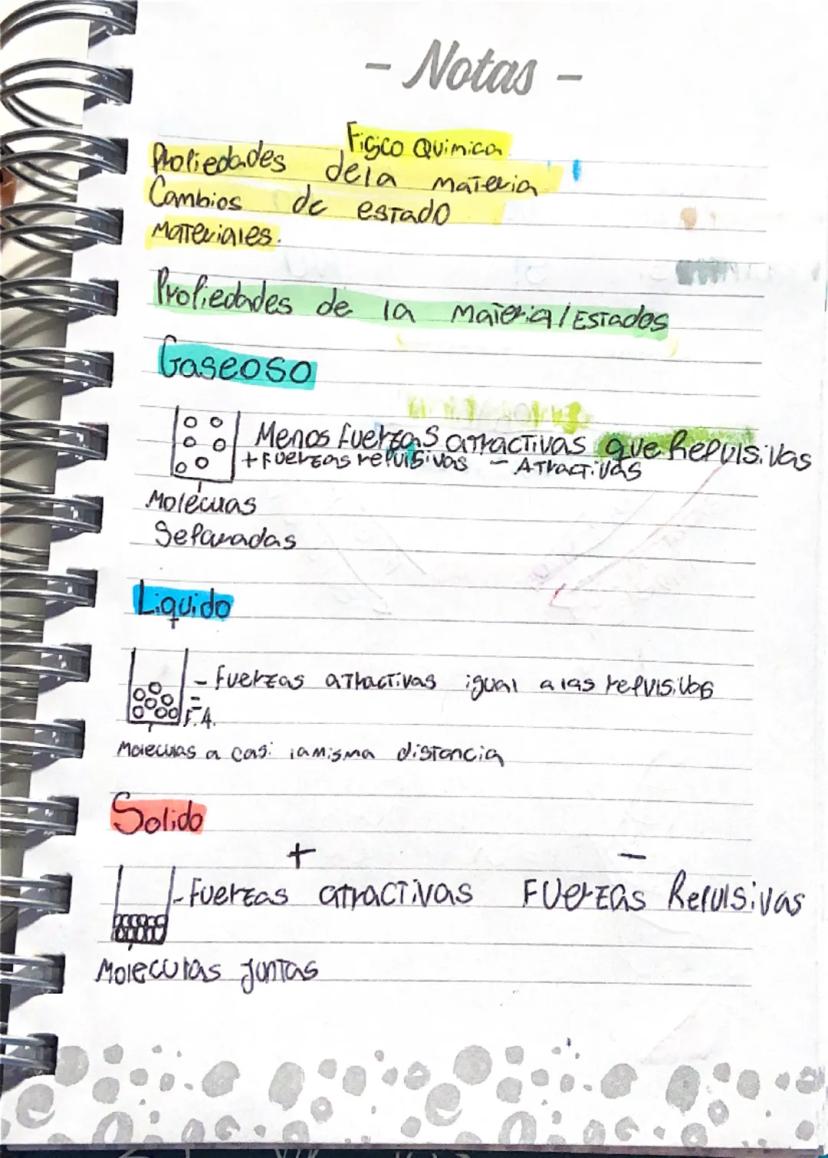 - Notas -
Fisico Quimica
Propiedades dela materia
Cambios de estado
Materiales.
Propiedades de la Materia/Estados
Gaseoso
Menos fuerzas atractivas que Repulsivas
+ fuerzas repulsivas - Atractivas
Moleculas
Separadas
Liquido
- fuerzas atractivas igual a las repulsivas
=
F.A.
Moleculas a casi la misma distancia
Solido
+ -
- Fuerzas atractivas Fuerzas Repulsivas
Moleculas juntas